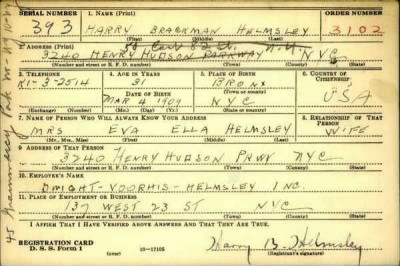 SERIAL NUMBER 1. NAME (Print) ORDER NUMBER
393 HARRY BRAKMAN HELMSLEY 3102
(First) (Middle) (Last)
2. ADDRESS (Print)
3240 HENRY HUDSON PARKWAY NYC
(Number and street or R. F. D. number) (Town) (County) (State)
3. TELEPHONE 4. AGE IN YEARS 5. PLACE OF BIRTH 6. COUNTRY OF CITIZENSHIP
KI-3-2514 31 BRONX
DATE OF BIRTH
MAR 4 1909 NYC USA
(Mo.) (Day) (Yr.) (State or country)
7. NAME OF PERSON WHO WILL ALWAYS KNOW YOUR ADDRESS 8. RELATIONSHIP OF THAT PERSON
MRS EVA ELLA HELMSLEY WIFE
(Mr., Mrs., Miss) (First) (Middle) (Last)
9. ADDRESS OF THAT PERSON
3240 HENRY HUDSON PKWY NYC
(Number and street or R. F. D. number) (Town) (County) (State)
10. EMPLOYER'S NAME
DWIGHT-VOORHIS-HELMSLEY INC.
11. PLACE OF EMPLOYMENT OR BUSINESS
137 WEST 23 ST NYC
(Number and street or R. F. D. number) (Town) (County) (State)
I AFFIRM THAT I HAVE VERIFIED ABOVE ANSWERS AND THAT THEY ARE TRUE.
REGISTRATION CARD
D. S. S. Form 1 16-17105 Harry B. Helmsley
(Registrant's signature)